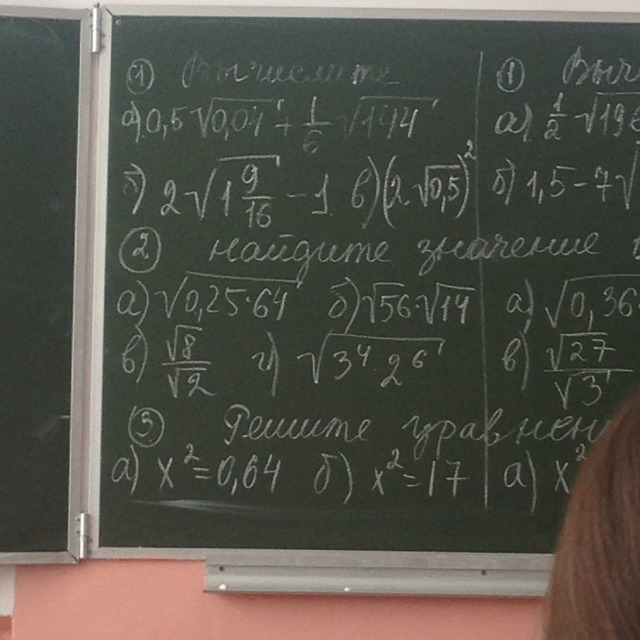 ① Вычислите
а) 0,5√0,04 + 1/6 √144
б) 2√1 9/16 - 1 в) (2√0,5)²
② найдите значение
а) √0,25·64 б) √56·√14
в) √8/√2 г) √3⁴·2⁶
③ Решите уравнен
а) x²=0,64 б) x²=17
①
а) 1/2 √19
б) 1,5-7√
а) √0,36·
в) √27/√3
а) x²